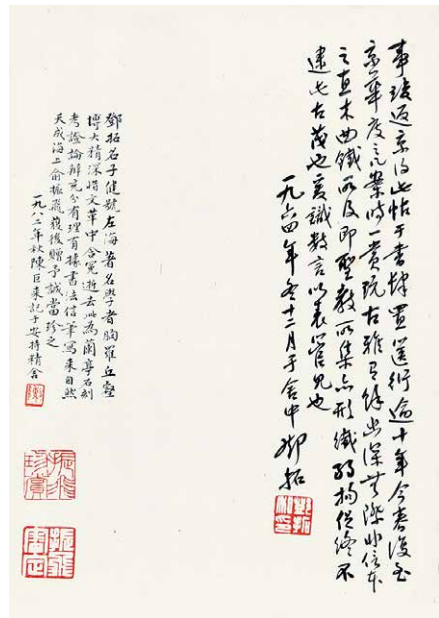 事竣返京得此帖于書肆置篋衍逾十年今春復至
京華度元案時一賞玩古雅有餘幽深無際非信本
之直木曲鐵所及即聖教所集亦形纖弱拘促終不
逮此古茂也爰識數言以表管見也
一九六四年冬十二月于舍中 鄧拓
鄧拓名子健號左海著名學者胸羅丘壑
博大精深惜文華中含冤逝去此為蘭亭石刻
考證論辯充分有理有據書法信筆寫來自然
天成海上俞振飛獲後贈予誠當珍之
一九八二年秋陳巨來記于安持精舍